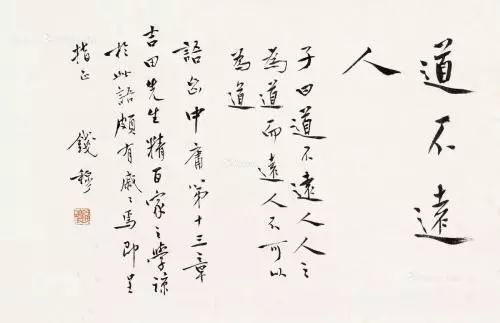 道不遠
人
子曰道不遠人人之
為道而遠人不可以
為道
語出中庸第十三章
吉田先生精百家之學諒
於此語頗有戚戚焉即呈
指正
錢穆